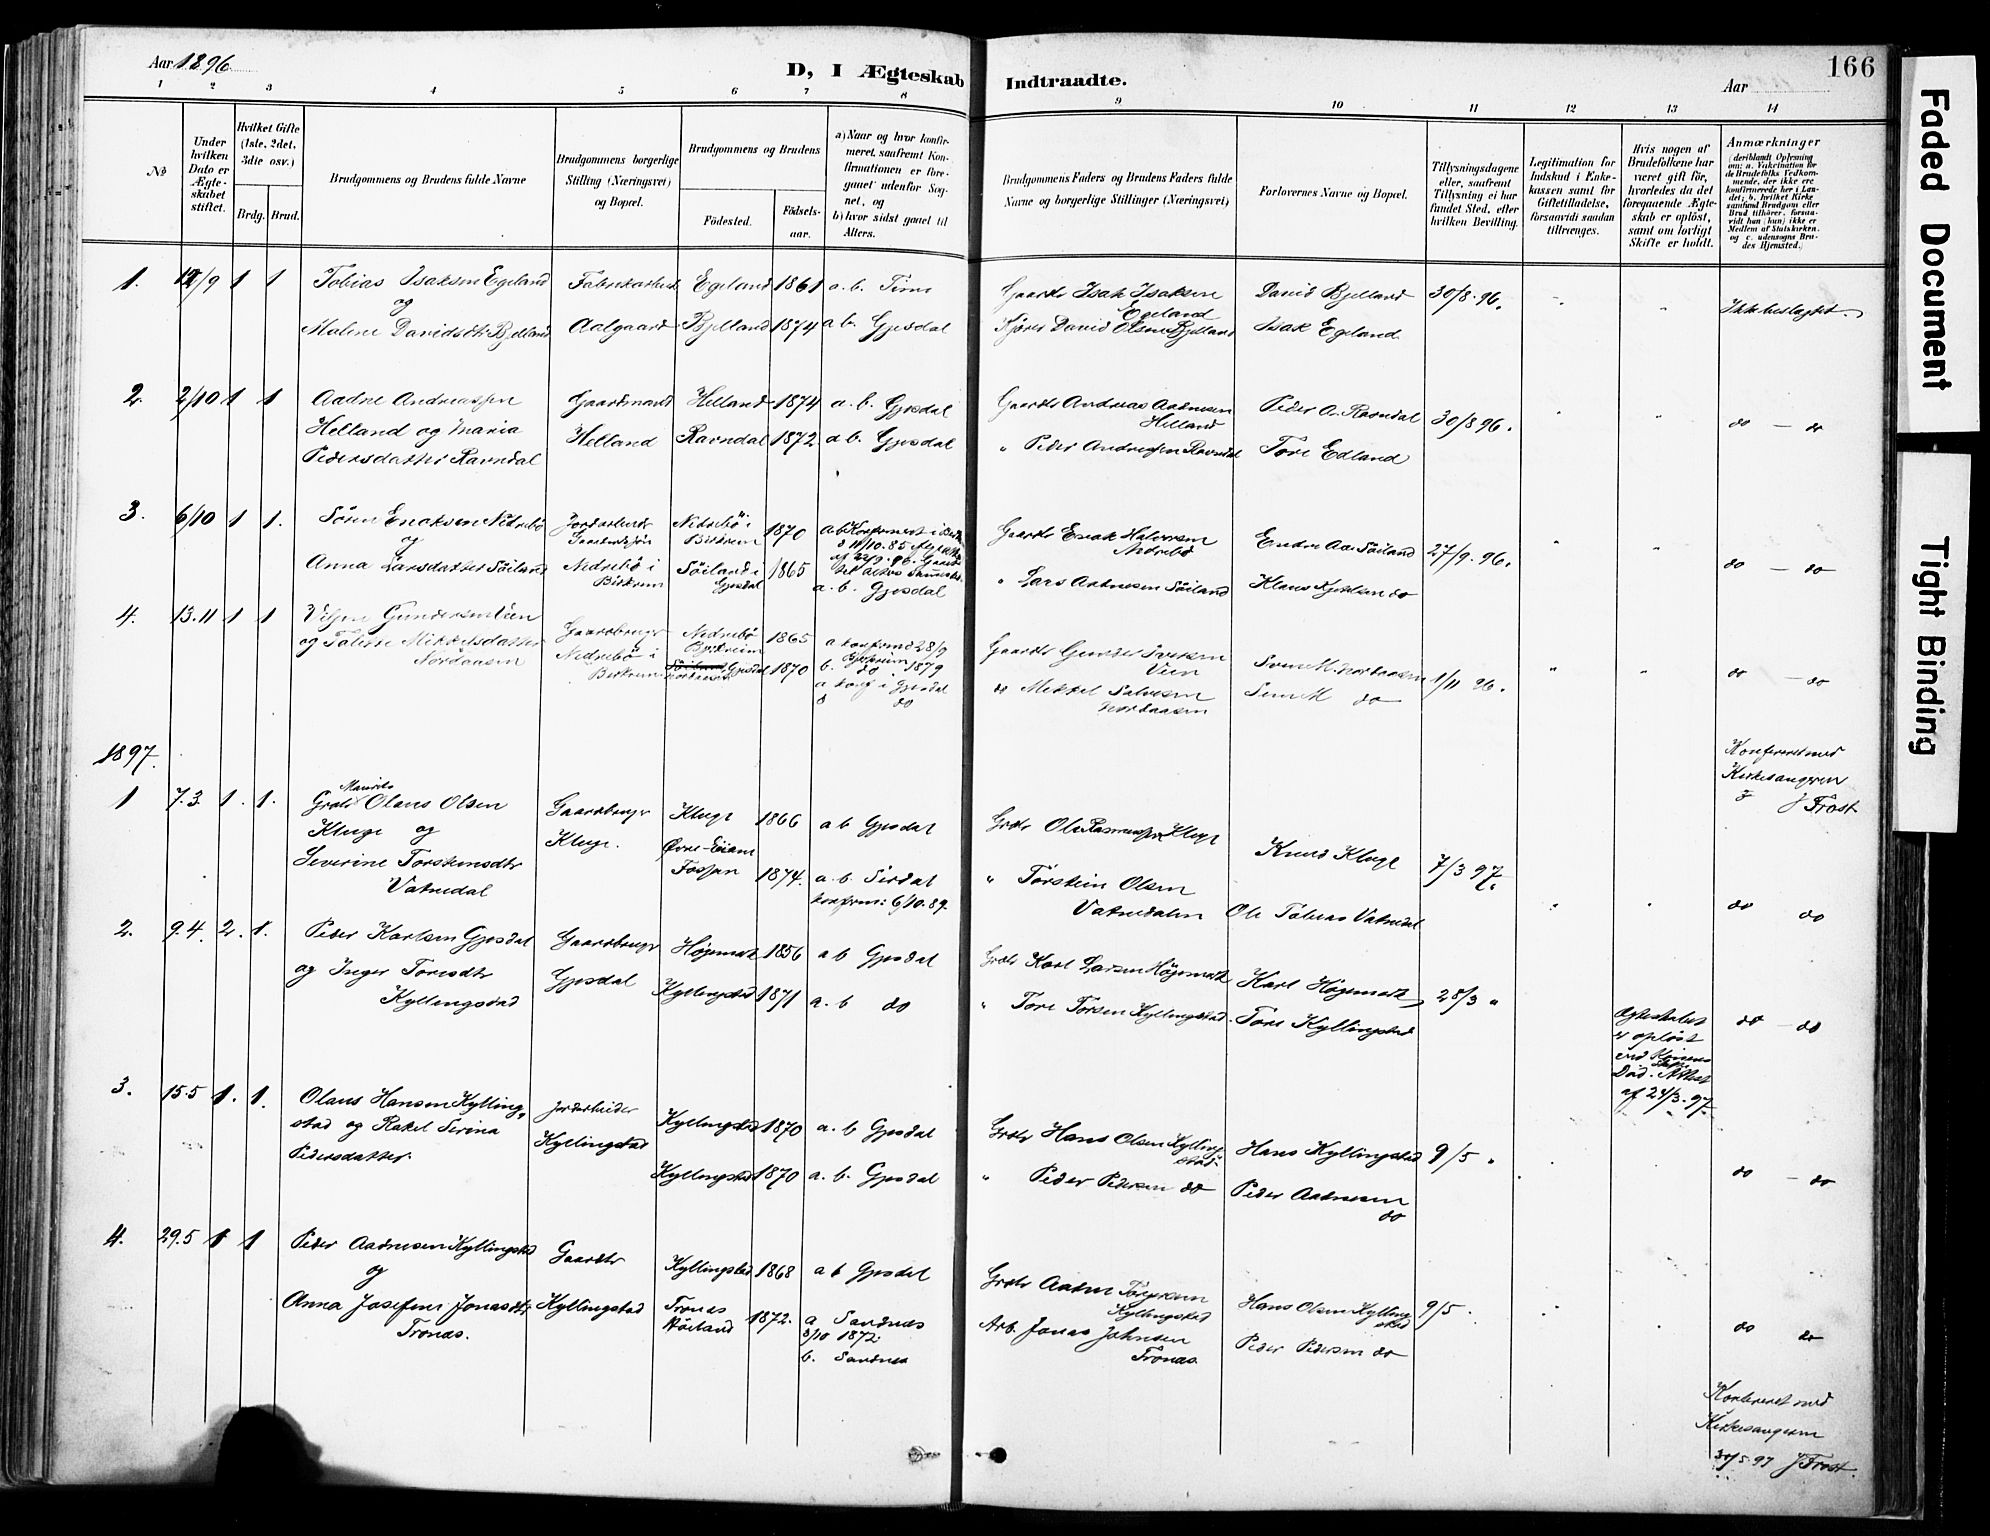 Aar 1896
D, I Ægteskab Indtraadte.
Aar
166
1 2 3 4 5 6 7 8 9 10 11 12 13 14
No
Under hvilken Dato er Ægteskabet stiftet.
Hvilket Gifte (1ste, 2det, 3die osv.)
Brdg. Brud.
Brudgommens og Brudens fulde Navne
Brudgommens borgerlige Stilling (Næringsvei) og Bopæl.
Brudgommens og Brudens
Födested.
Födselsaar.
a) Naar og hvor konfirmeret, saafremt Konfirmationen er foregaaet udenfor Sognet, og
b) hvor sidst gaaet til Alters.
Brudgommens Faders og Brudens Faders fulde Navne og borgerlige Stillinger (Næringsvei)
Forlovernes Navne og Bopæl.
Tillysningsdagene eller, saafremt Tillysning ei har fundet Sted, efter hvilken Bevilling.
Legitimation for Indskud i Enkekassen samt for Giftetilladelse, forsaavidt saadan tiltrænges.
Hvis nogen af Brudefolkene har været gift før, hvorledes da det foregaaende Ægteskab er opløst, samt om lovligt Skifte er holdt.
Anmærkninger (deriblandt Oplysning om: a. Vakcination for de Brudefolks Vedkommende, der ikke ere konfirmerede her i Landet; b. hvilket Kirkesamfund Brudgom eller Brud tilhører, forsaavidt han (hun) ikke er Medlem af Statskirken, og c. udensogns Brudes Hjemsted.)
1. 12/9 1 1 Tobias Isaksen Egeland Egeland 1861 a. b. Time Gaardb Isak Isaksen David Bjelland 30/8.96.
og Egeland Ikke beslægtet
Malene Davidsdtr Bjelland Aalgaard Bjelland 1874 a b. Gjesdal David Olsen Bjelland Isak Egeland
2. 2/10 1 1 Aadne Andreassen Gaardmand Helland 1874 a. b. Gjesdal Gaardb Andreas Aadnesen Peder A. Ravndal 30/8 96.
Helland og Maria Helland Ravndal 1872 a b. Gjesdal Helland do — do
Pedersdatter Ravndal " Peder Andreassen Ravndal Tore Edland
3. 6/10 1 1. Sören Enoksen Nedrebö Nedrebö i Birkrem 1870 Gaardb Enok Halvorsen Nedrebö Endre Aa. Söiland 27/9. 96.
og
Anna Larsdatter Söiland Nedrebö i Birkrem Söiland i Gjesdal 1865 a. b. Gjesdal " Lars Aadnesen Söiland do do — do
4. 13.11 1 1 Gundersen Veen Gaardbruger Nedrebö Bjerkreim 1865 a konfirmed 28/9 Bjerkreim 1879 Gaardb Gunder Veen Sven M. Nordaasen 1/11 96.
og Mikkelsdatter Nordaasen Nedrebö i Birkrem Gjesdal 1870 a konf i Gjesdal do do Mikkel Nordaasen do do — do
1897.
Konfereret med Kirkesangeren
J Frost
1 7.3 1. 1. Maurits
Olaus Olsen Gaardbruger Kluge 1866 a b Gjesdal Grdbr Ole Rasmussen Kluge Knud Kluge 7/3 97.
Kluge og Kluge. Øvre-
Severine Torsteinsdtr Vatnedal 1874. a. b. Sirdal konfirm: 6/10.89. " Torstein Olsen Vatnedalen Ole Tobias Vatnedal do do
2. 9.4. 2. 1. Peder Karlsen Gjesdal Gaardbruger Høgemork 1856 a b Gjesdal Grdbr Karl Larsen Høgemork Karl Høgemork 28/3 "
og Inger Toresdtr Kyllingstad Gjesdal Kyllingstad 1871 a. b do " Tore Toresen Kyllingstad. Tore Kyllingstad do — do
Ægteskabet er opløst ved Død. Attest af 24/3-97
3. 15.5 1. 1. Olaus Hansen Kyllingstad og Rakel Serina Pedersdatter. Jordarbeider Kyllingstad Kyllingstad 1870 a. b Gjesdal Grdbr Hans Olsen Kyllingstad Hans Kyllingstad 9/5 "
Kyllingstad 1870 a. b. Gjesdal " Peder Pedersen do Peder Aadnesen do do — do
4. 29.5 1 1 Peder Aadnesen Kyllingstad Gaardbr Kyllingstad 1868 a b Gjesdal Grdbr Kyllingstad Hans Olsen Kyllingstad 9/5.
og
Anna Josefine Jonasdtr Tronas. Kyllingstad Tronas Höiland 1872. a Sandnes 8/10 1872. b. Sandnes Arb. Jonas Johnsen Tronas Peder Pedersen do do do
Konfereret med Kirkesangeren
30/5 97 J Frost.
Faded Document
Tight Binding